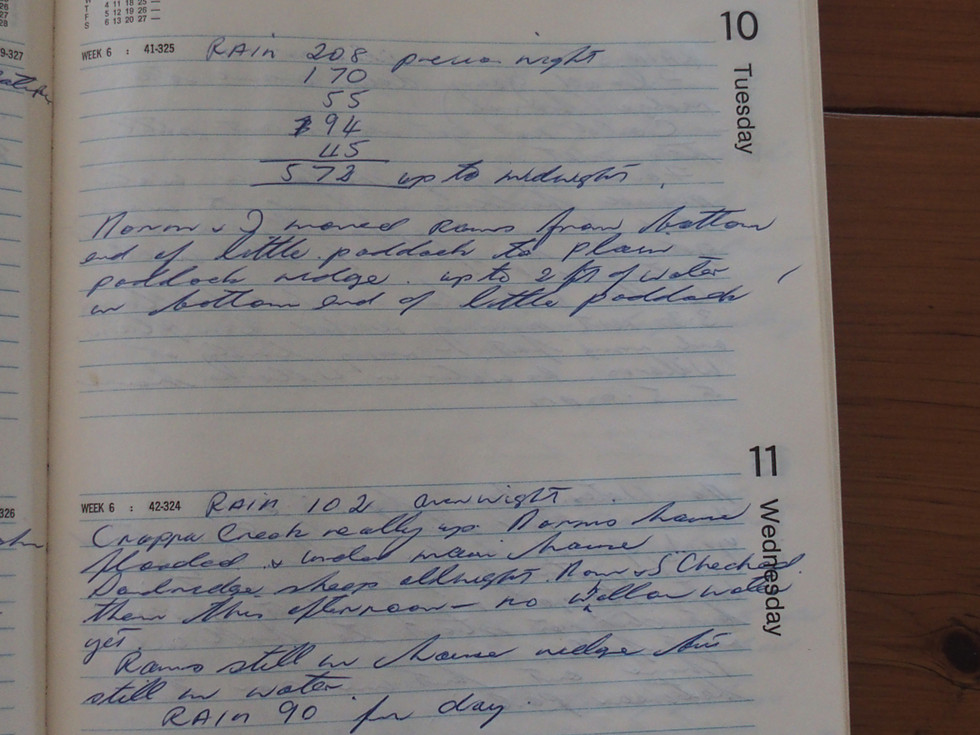 4 11 18 25 —
T 5 12 19 26 —
F 6 13 20 27 —
S
10
Tuesday
WEEK 6 : 41-325
RAin 208 previo night
170
55
94
45
572 up to midnight.
Norm & I moved Rams from bottom
end of little paddock to plain
paddock ridge. up to 2 ft of water
in bottom end of little paddock
11
Wednesday
WEEK 6 : 42-324
RAin 102 overnight
Croppa Creek really up. Norms house
flooded & under main house
sheep allright. Norm & I Checked
them this afternoon — no water
yet
Rams still on house ridge but
still in water.
RAin 90 for day.
9-327
326